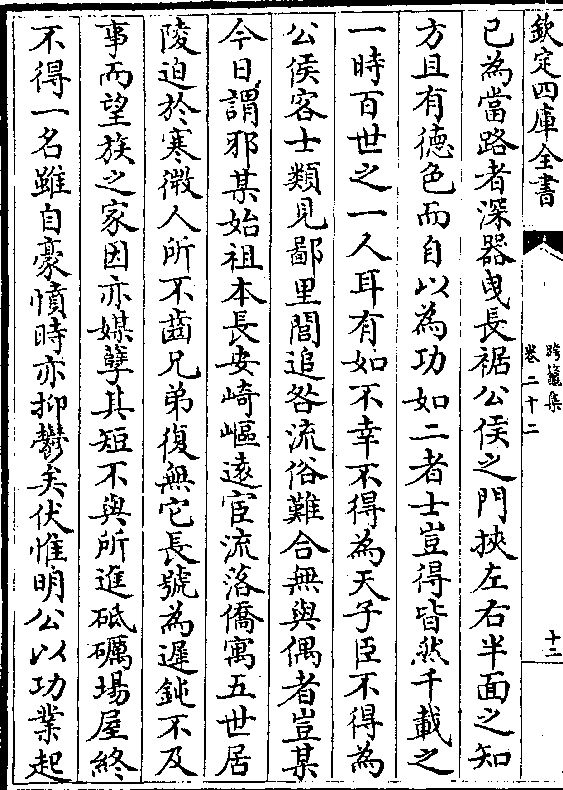 欽定四庫全書
跨鼇集
卷二十二
十二
已為當路者深器曳長裾公侯之門挾左右半面之知
方且有德色而自以為功如二者士豈得皆然千載之
一時百世之一人耳有如不幸不得為天子臣不得為
公侯客士類見鄙里閭追咎流俗難合無與偶者豈某
今日謂邪某始祖本長安崎嶇遠宦流落僑寓五世居
陵迫於寒微人所不齒兄弟復無它長號為遲鈍不及
事而望族之家因亦媒孽其短不與所進砥礪場屋終
不得一名雖自豪憤時亦抑鬱矣伏惟明公以功業起